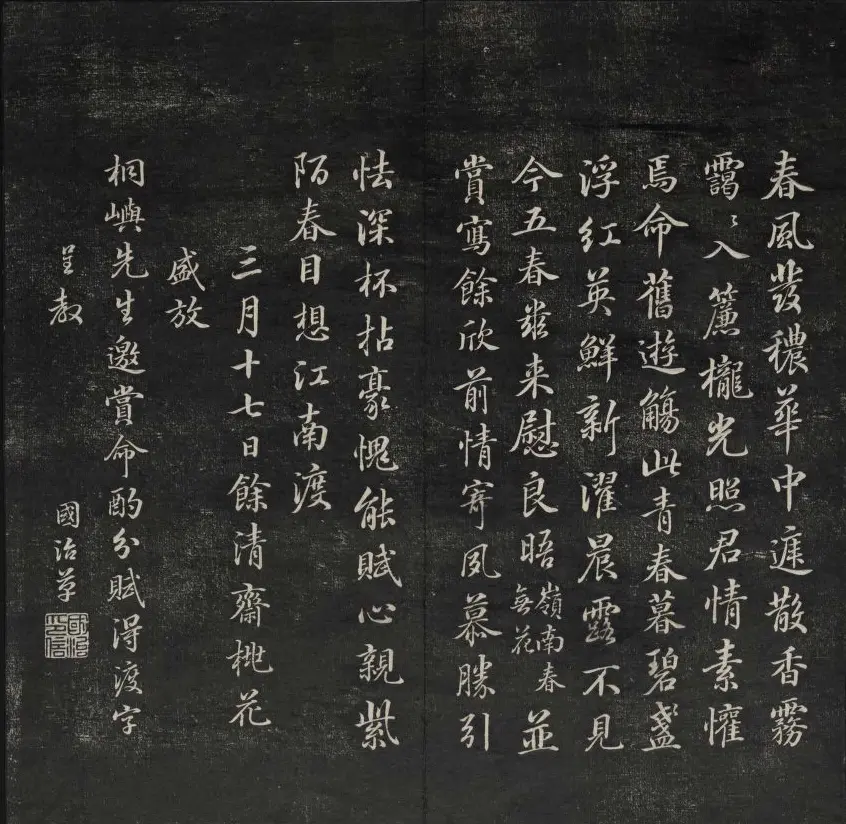 春風發穠華中遲散香霧
靄〻入簾櫳光照君情素懽
焉命舊遊觴此青春暮碧盞
浮紅英鮮新濯晨露不見
今五春茲来慰良晤嶺南春無花並
賞寫餘欣前情寄夙慕勝引
怯深杯拈豪愧能賦心親紫
陌春目想江南渡
三月十七日餘清齋桃花
盛放
桐嶼先生邀賞命酌分賦得渡字
呈教
國治草
國治